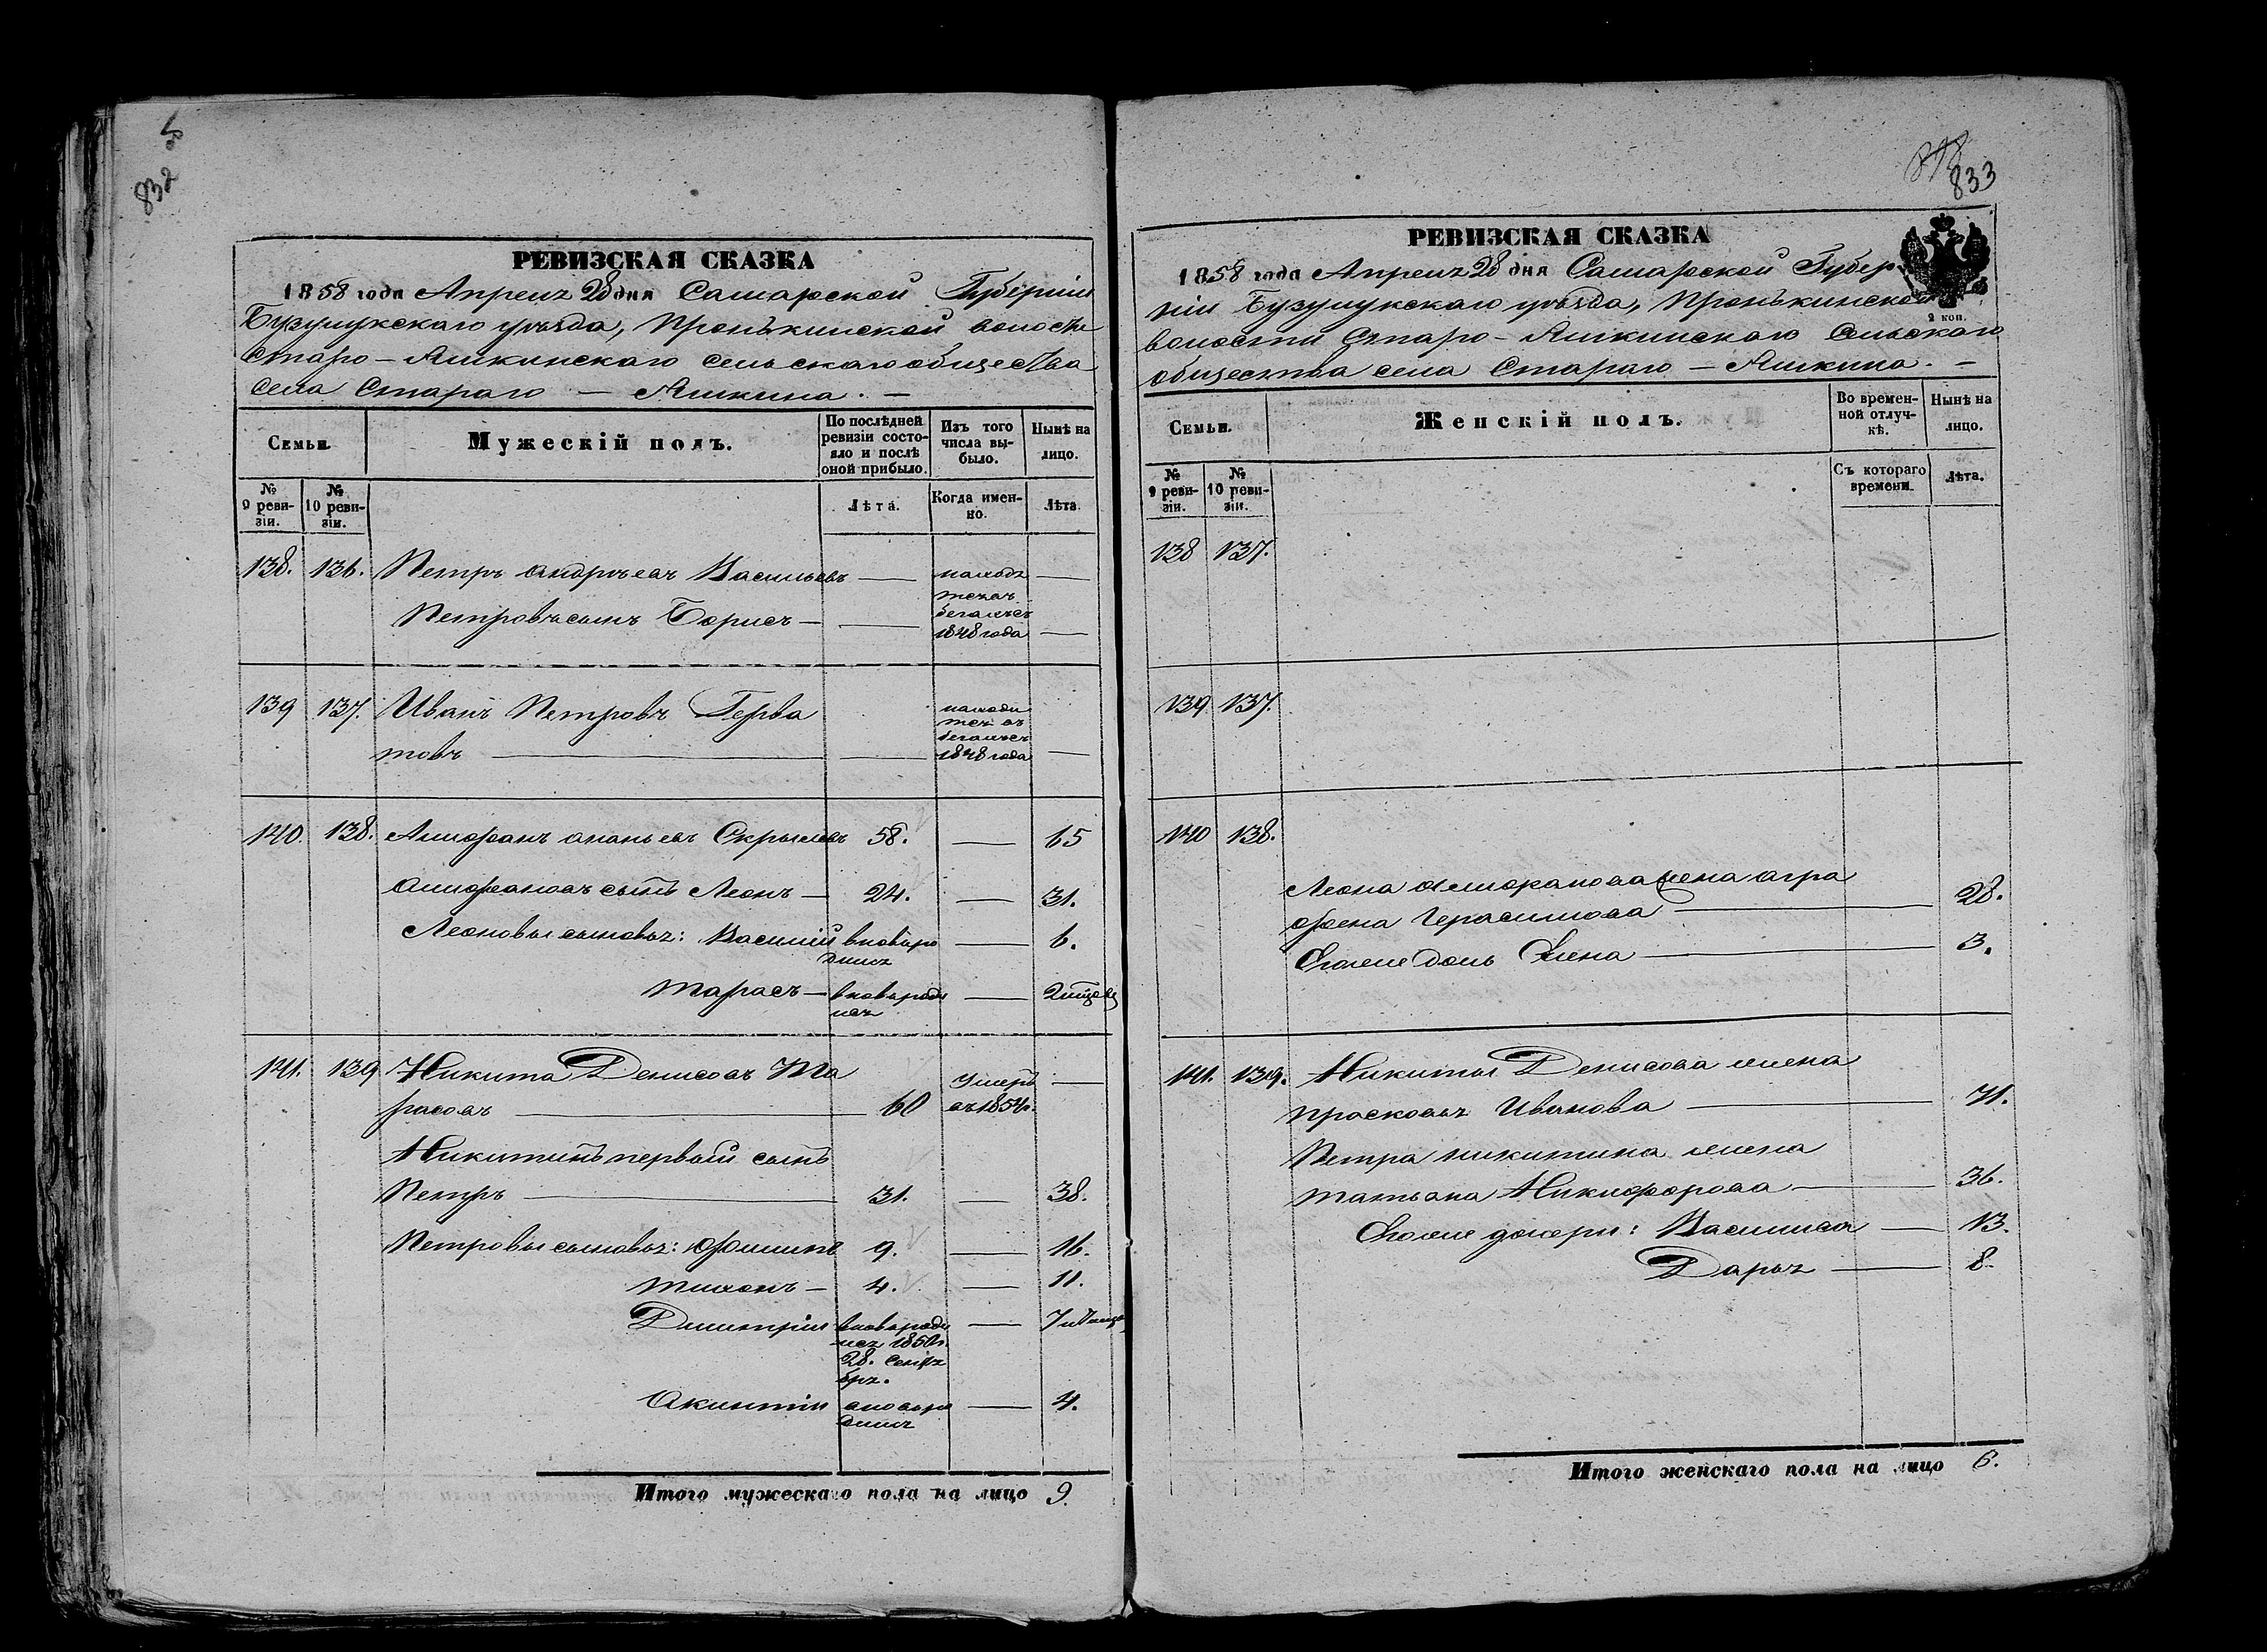 832
833
РЕВИЗСКАЯ СКАЗКА
1858 года Апреля 28 дня Самарской Губерніи
Бузулукскаго уѣзда, Пронькинской волости
Старо-Яшкинскаго сельскаго общества
села Стараго — Яшкина. —
Семьи.
Мужескій полъ.
По послѣдней ревизіи состояло и послѣ оной прибыло.
Изъ того числа выбыло.
Нынѣ на лицо.
№ 9 ревизіи.
№ 10 ревизіи.
Лѣта.
Когда именно.
Лѣта.
138. 136. Петръ Андрѣевъ Васильевъ — находится въ —
Петровъ сынъ Борисъ — — бегахъ съ 1848 года —
139 137. Иванъ Петровъ Герва находи
товъ — — тся въ бегахъ съ 1848 года —
140. 138. Амфранъ ананьевъ Скрылевъ 58. — 65
Амфрановъ сынъ Леонъ — 24. — 31.
Леоновы сыновья: Василій вновь родился — 6.
Тарасъ — вновь родился — 2 мѣсяц
141. 139 Никита Денисовъ Та умеръ —
расовъ — 60 въ 1854г.
Никитинъ первый сынъ
Петръ — 31. — 38.
Петровы сыновья: Филипъ 9. — 16.
Тихонъ — 4. — 11.
Дмитрій вновь родился 1850г. 28. Сентября. — 7
Акинтій вновь родился — 4.
Итого мужескаго пола на лицо 9.
РЕВИЗСКАЯ СКАЗКА
1858 года Апреля 28 дня Самарской Губер
ніи Бузулукскаго уѣзда, Пронькинской
2 коп.
волости Старо-Яшкинскаго Сельскаго
общества села Стараго — Яшкина. —
Семьи.
Женскій полъ.
Во временной отлучкѣ.
Нынѣ на лицо.
№ 9 ревизіи.
№ 10 ревизіи.
Съ котораго времени.
Лѣта.
138 137.
139 137.
140 138.
Леона Амфранова жена агра
фена Герасимова — 28.
Егоже дочь Елена — 3.
141. 139. Никиты Денисова жена
Прасковья Иванова — 71.
Петра никитина жена
татьяна Никифорова — 36.
Егоже дочери: Василиса — 13.
Дарья — 8.
Итого женскаго пола на лицо 6.